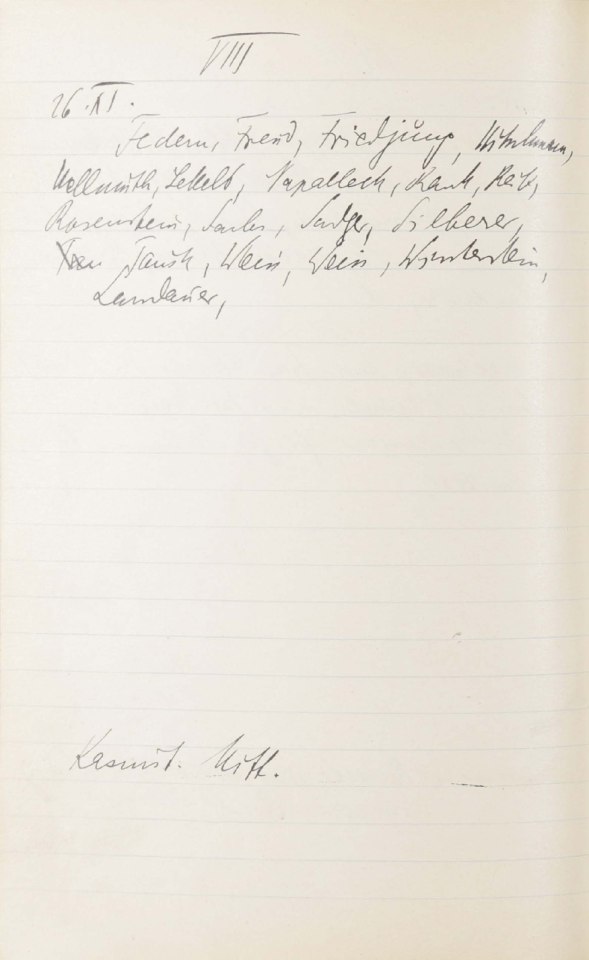 VIII
26.XI.
Federn, Freud, Friedjung, Hitschmann,
Hellmuth, Jekels, Nepalleck, Rank, Reik,
Rosenstein, Sachs, Sadger, Silberer,
Tausk, Weiss, Weiss, Winterstein,
Landauer,
Kasuist. Mitt.